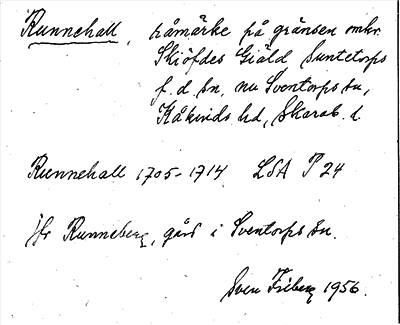 Runnehall, råmärke på gränsen omkr.
Skiöfdes Giäld Suntetorps
f.d. sn, nu Sventorps sn,
Kåkinds hd, Skarab. l.
Runnehall 1705-1714 LSA P 24
Jfr Runneberg, gård i Sventorps sn.
Sven Friberg 1956.